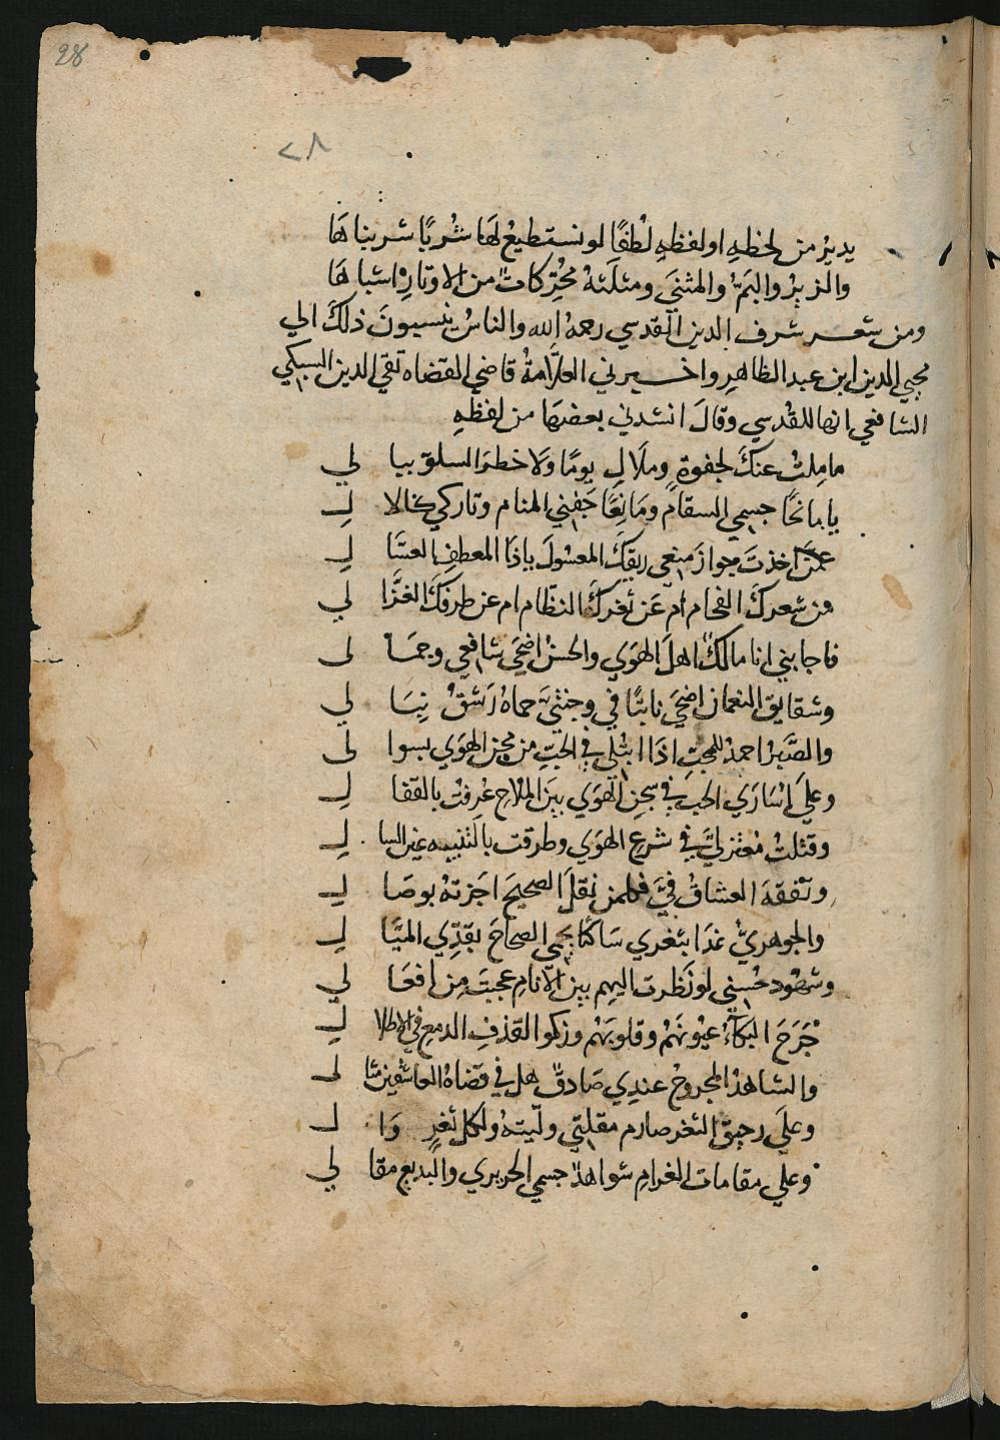 28
٢٨
يديرُ من لحظهِ او لفظهِ لُطْفًا لو نستطيعُ لهَا شُربًا شربناهَا
والزيرُ والبَمُّ والمثنَى ومثلَثهُ محُرِّكاتٌ من الاوتارِ اشباهَا
ومن شعر شرف الدين القدسي رحمهُ الله والناسُ ينسبونَ ذلكَ الي
محيي الدين ابن عبد الظاهرِ واخبرني العلّامةُ قاضي القضاه تقي الدين السبكي
الشافعي انها للقدسي وقالَ انشدني بعضهَا من لفظهِ
ما مِلتُ عنكَ لجفوةٍ وملَالِ يومًا وَلا خطرَ السلوّ ببا لي
يا مانحًا جسمي السقام وَمَانِعًا جَفني المنام وتاركي كالا لِ
عمّن اخذتَ جوازَ منعي ريقكَ المعسُولَ ياذَا المعطفِ العسَّا لِ
من شعركَ الفحام أم عَن ثغركَ النظّام ام عن طرفكَ الغزَّا لي
فاجابني انا مالكٌ اهلَ الهوَي والحسنُ اضحَي شافعي وجمَا لى
وشقايق النعمان اضحَي نابتًا في وجنتيَ حماهُ رَشقُ نِبَا لي
والصَّبرُ احمدُ للمحبِّ اذَا ابتُلي في الحبّ من محن الهوَي بسوا لى
وعلَي اسَارَي الحب في سجن الهوَي بينَ الملاح عُرفتُ بالقفا لِ
وقتلتُ معتزليَّ في شرع الهوَي وطرقت بالتنبيه غير السا لِ
وتفقهَ العشاقُ فيَّ فكلمن نقلَ الصحيحَ اجَزتهُ بوصَا لِ
والجوهريُّ غدَا بثغري سَاكنًا يحمي الصحاحَ بقدِّي الميَّا لِ
وشهُود حُسني لو نَظرت اليهِم بين الانامِ عجبتَ مِن افعَا لي
جَرَحَ البكآءُ عيُونهَمُ وقلوبَهُم وزكو القذفِ الدمع في الاطلا لِ
والشاهدُ المجروحُ عندِي صَادقٌ هل في قضاهُ العاشقين مثا لى
وعلَي رحيق الثغر صارم مقلتي ولّيتهُ ولكل ثغرٍ وَا لِ
وعلي مقامات الغرامِ شواهدٌ جسمي الحريري والبديع مقا لي